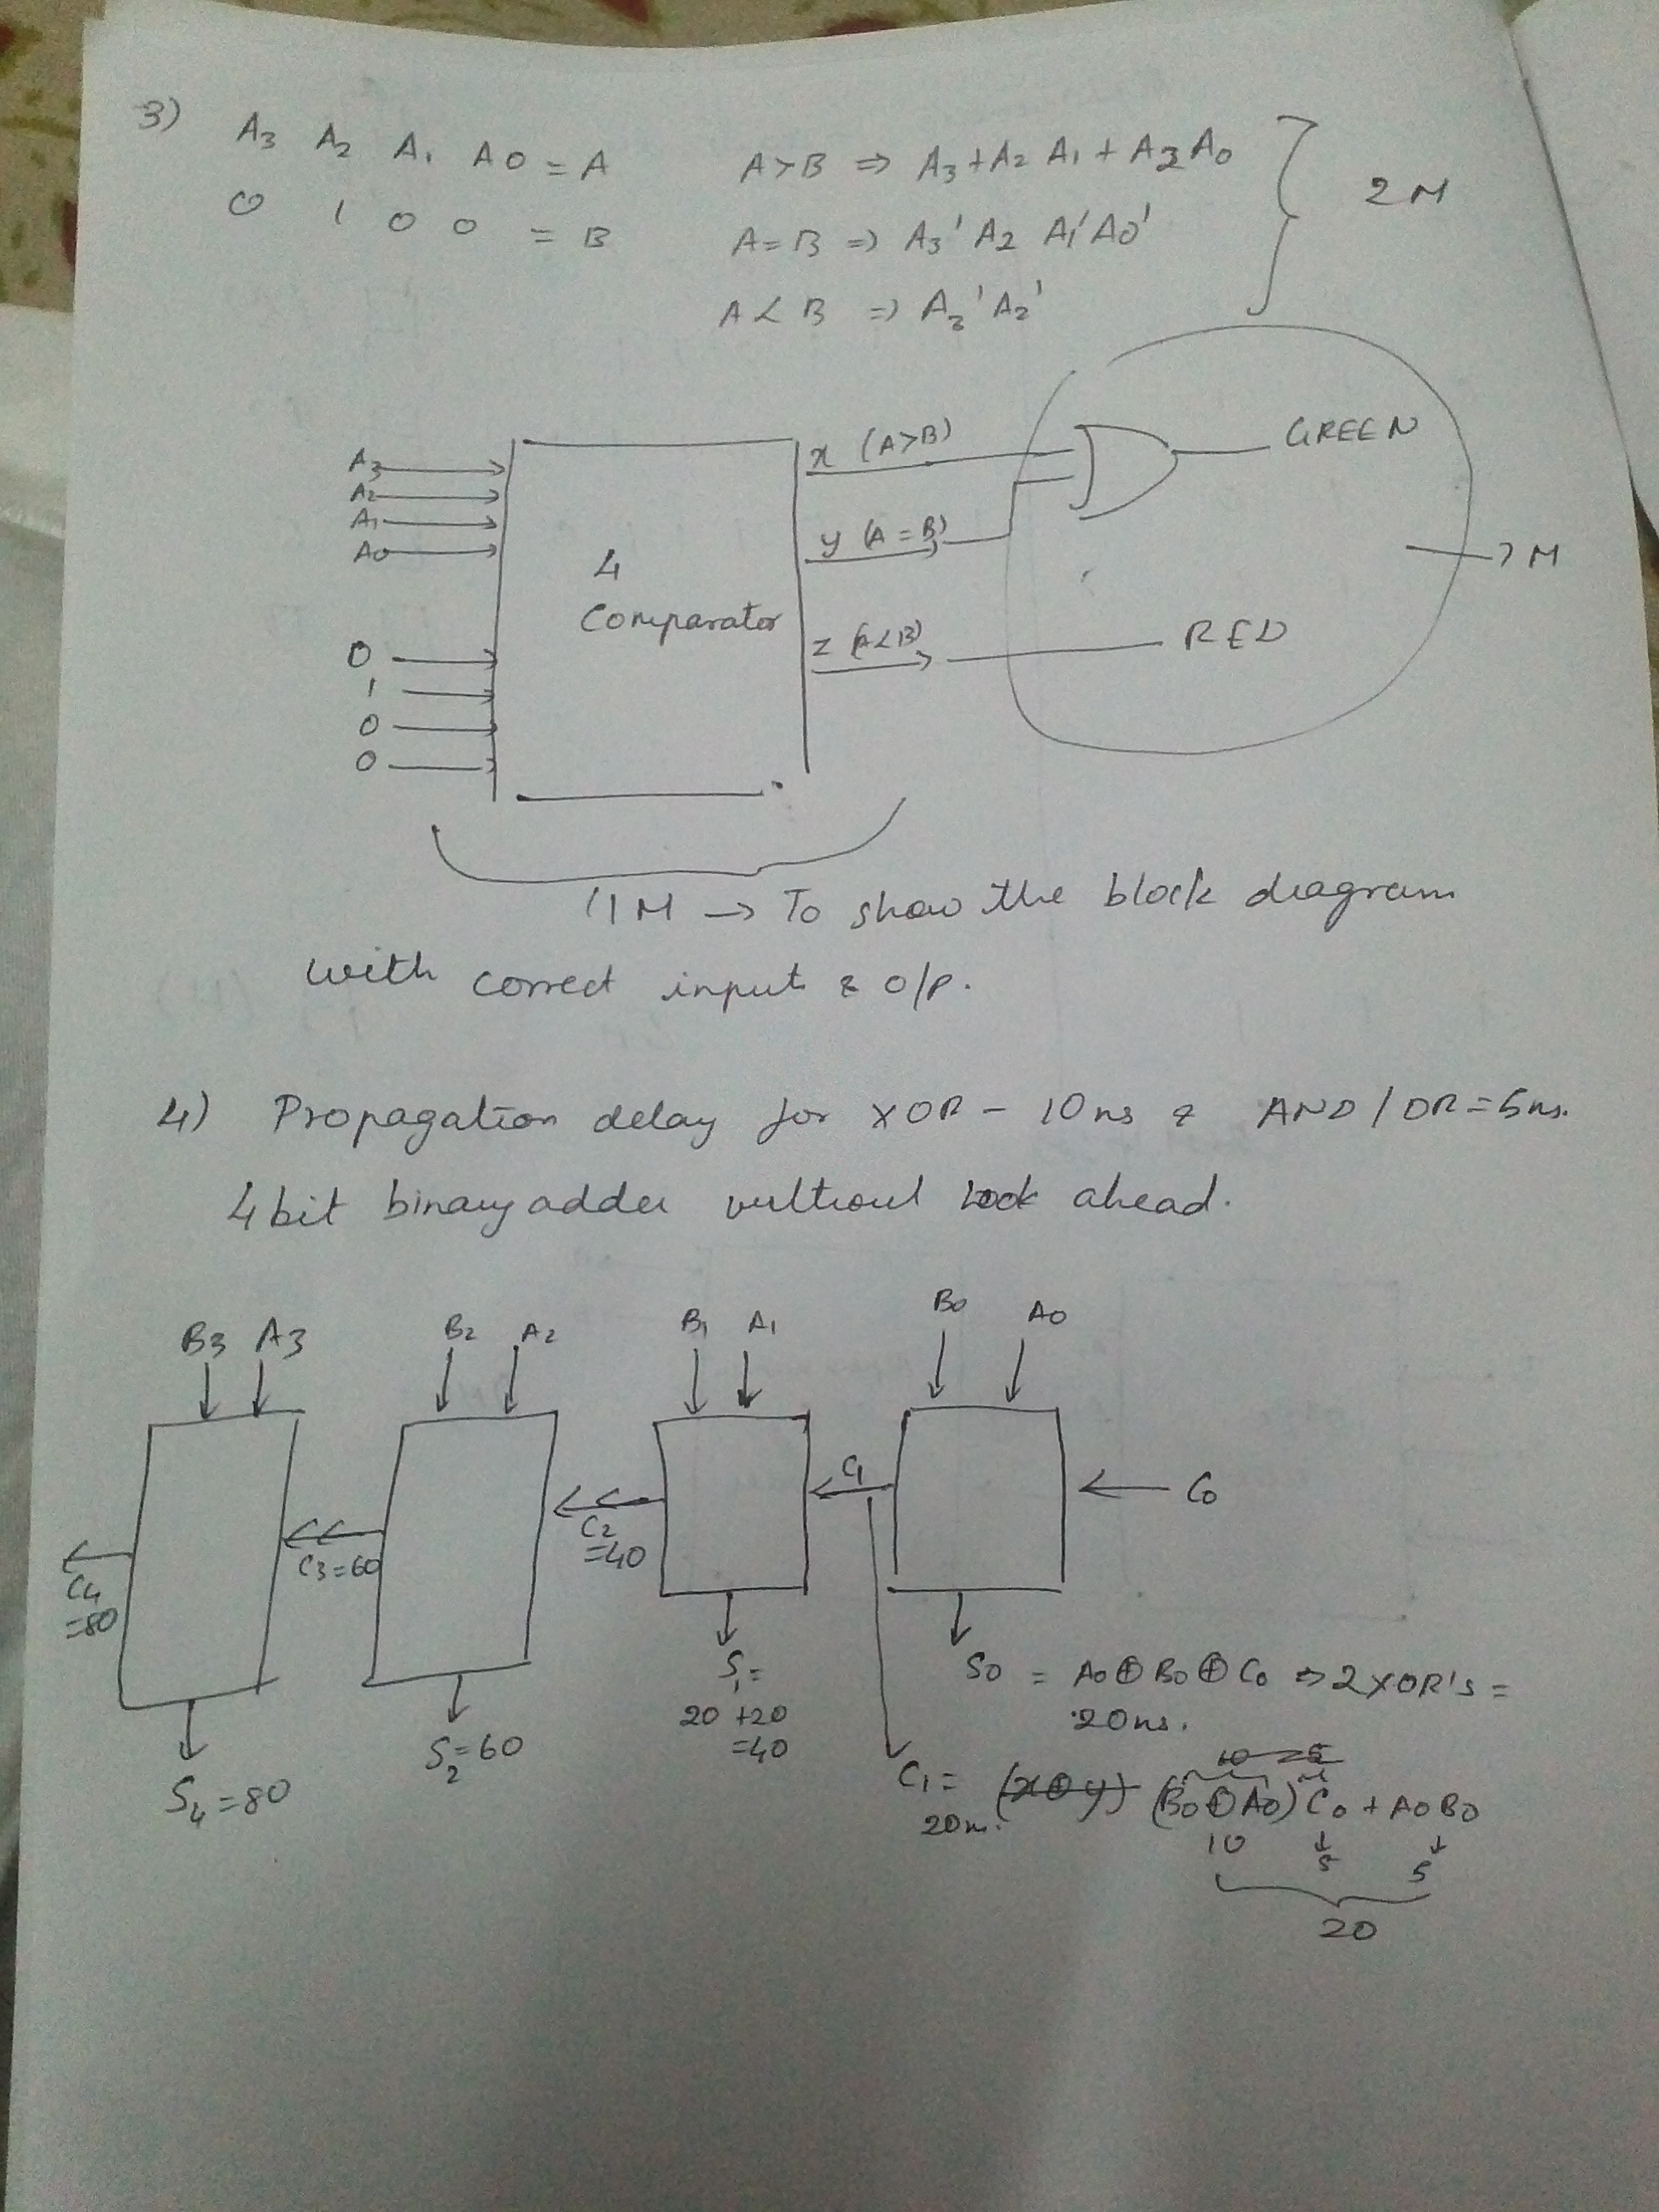 3) A3 A2 A1 A0 = A
0 1 0 0 = B
A>B => A3+A2 A1 + A2A0
A=B => A3' A2 A1'A0'
A<B => A3'A2'
2M
A3
A2
A1
A0
0
1
0
0
4
Comparator
x (A>B)
y (A=B)
z (A<B)
GREEN
RED
M
1M → To show the block diagram
with correct input & O/P.
4) Propagation delay for XOR - 10ns & AND/OR=5ns.
4 bit binary adder without look ahead.
B3 A3 B2 A2 B1 A1 B0 A0
C4
=80
C3=60
C2
=40
C1
C0
S4=80
S2=60
S1=
20+20
=40
S0 = A0⊕B0⊕C0 => 2XOR's =
20ns.
C1= (x⊕y) (B0⊕A0)C0 + A0B0
20ns.
10 5 5
20